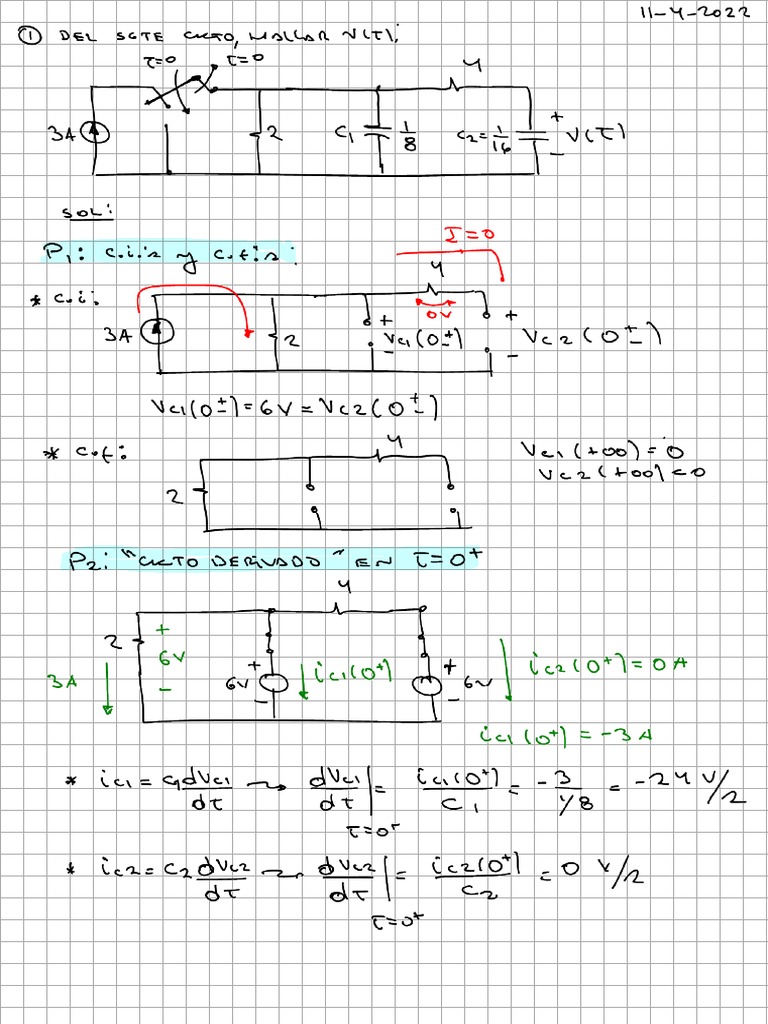 11-4-2022
① DEL SGTE CKTO, HALLAR V(τ);
τ=0 τ=0
4
3A 2 C₁ 1/8 C₂=1/16 + V(τ) −
SOL:
P₁: c.i.s y c.f.s:
I=0
* c.i:
4
0V
3A 2 + Vc1(0±) − + Vc2(0±) −
Vc1(0±)=6V=Vc2(0±)
* c.f:
4
2
Vc1(+∞)=0
Vc2(+∞)=0
P₂: "CKTO DERIVADO" EN τ=0⁺
4
2 + 6V −
3A
6V + − ic1(0⁺) + 6V − ic2(0⁺)=0A
ic1(0⁺)=-3A
* ic1=C₁dVc1/dτ ⤳ dVc1/dτ|τ=0⁺ = ic1(0⁺)/C₁ = -3/1/8 = -24 V/s
* ic2=C₂dVc2/dτ ⤳ dVc2/dτ|τ=0⁺ = ic2(0⁺)/C₂ = 0 V/s